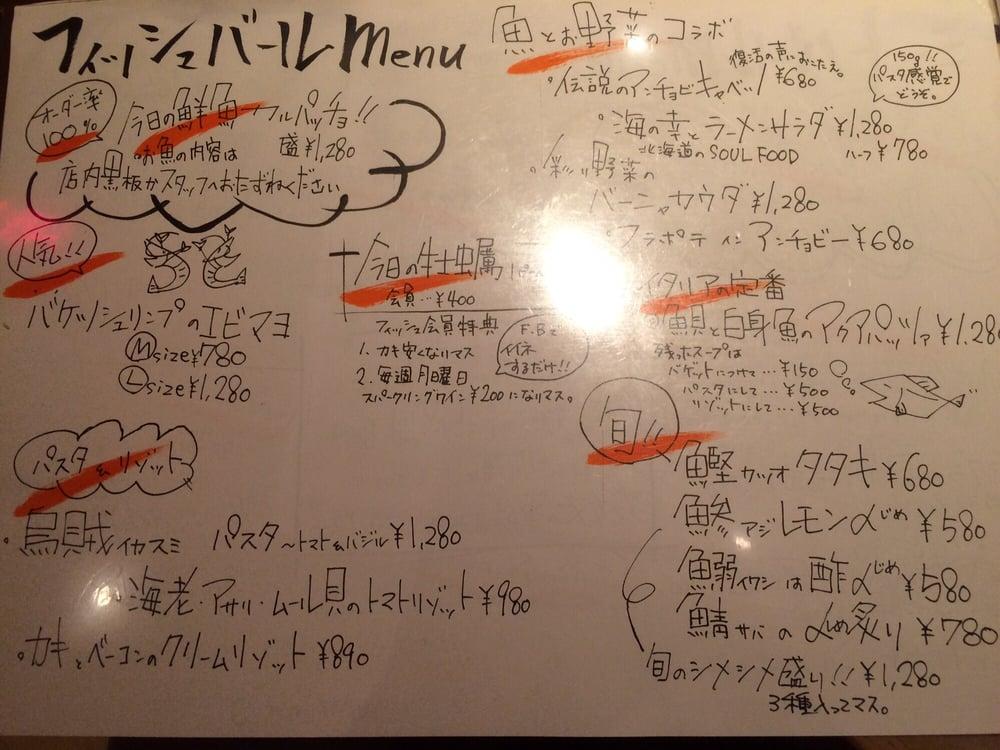 フィッシュバールmenu
オーダー率
100%
今日の鮮魚カルパッチョ!!
お魚の内容は 盛¥1,280
店内黒板かスタッフへおたずねください
人気!!
バケツシュリンプのエビマヨ
Msize¥780
Lsize¥1,280
今日の牡蠣
会員…¥400
フィッシュ会員特典
1. カキ安くなりマス
2. 毎週月曜日
スパークリングワイン¥200になりマス。
F.Bで
イイネ
するだけ!!
パスタ&リゾット
烏賊イカスミ パスタ〜トマト&バジル¥1,280
海老・アサリ・ムール貝のトマトリゾット¥980
カキとベーコンのクリームリゾット¥890
魚とお野菜のコラボ
復活の声におこたえ。
伝説のアンチョビキャベツ ¥680
150g!!
パスタ感覚で
どうぞ。
海の幸とラーメンサラダ¥1,280
北海道のSOUL FOOD ハーフ¥780
彩り野菜の
バーニャカウダ¥1,280
フラポテ イン アンチョビー¥680
イタリアの定番
貝と白身魚のアクアパッツァ¥1,280
残ったスープは
バゲットにつけて…¥150
パスタにして…¥500
リゾットにして…¥500
旬!!
鰹カツオタタキ¥680
鯵アジレモン〆じめ¥580
鰯イワシは酢〆じめ¥580
鯖サバの〆しめ炙り¥780
旬のシメシメ盛り!!¥1,280
3種入ってマス。